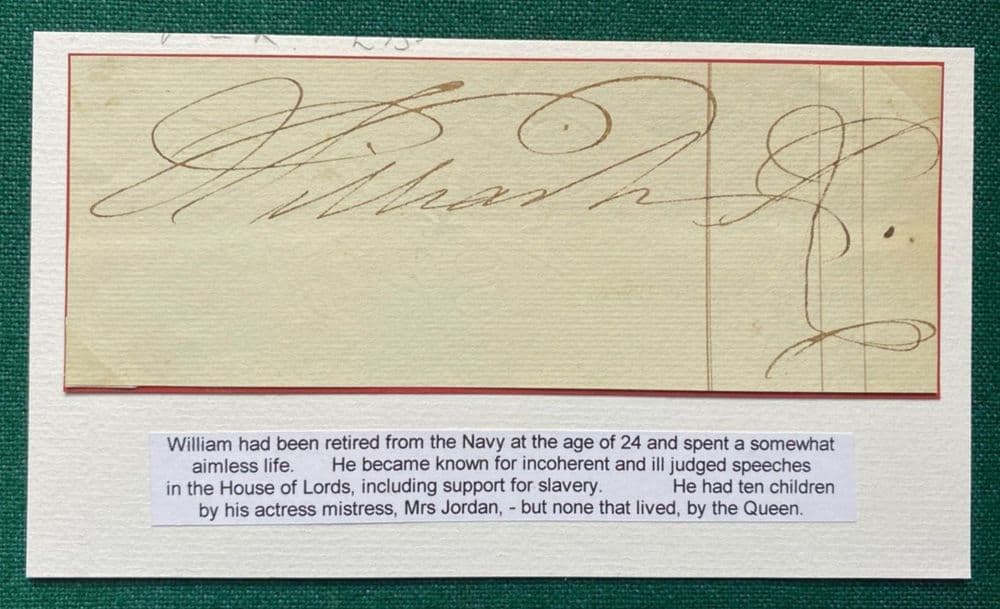 William R.
William had been retired from the Navy at the age of 24 and spent a somewhat
aimless life. He became known for incoherent and ill judged speeches
in the House of Lords, including support for slavery. He had ten children
by his actress mistress, Mrs Jordan, - but none that lived, by the Queen.